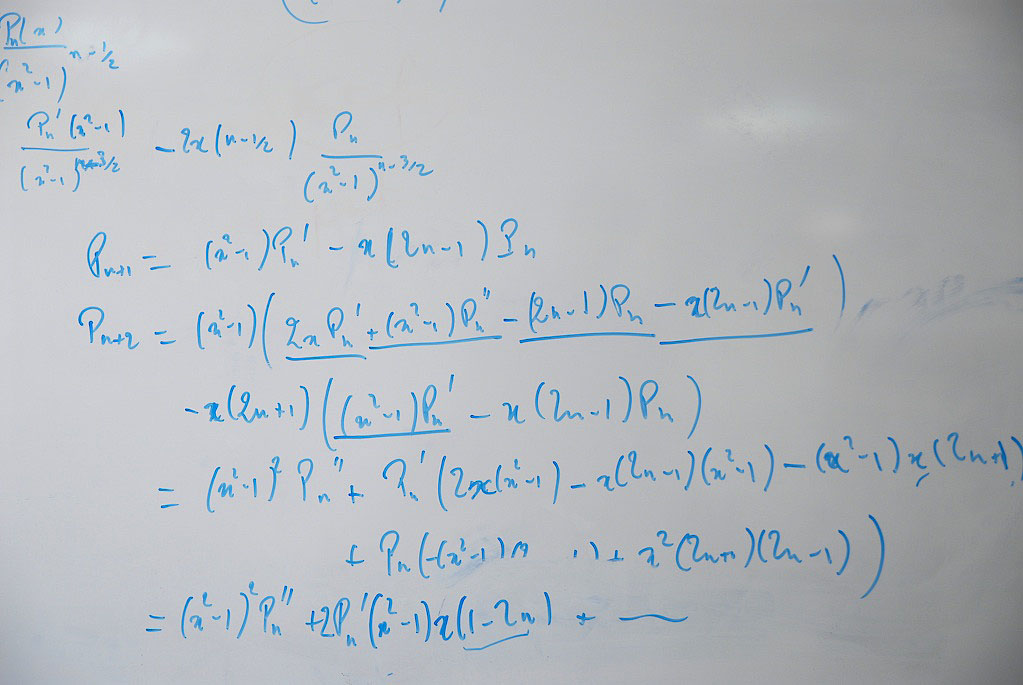 Pₙ(x) / (x²-1)^(n-1/2)
Pₙ'(x²-1) / (x²-1)^(n-3/2) - 2x(n-1/2) Pₙ / (x²-1)^(n-3/2)
Pₙ₊₁ = (x²-1)Pₙ' - x(2n-1)Pₙ
Pₙ₊₂ = (x²-1)(2xPₙ' + (x²-1)Pₙ'' - (2n-1)Pₙ - x(2n-1)Pₙ')
-x(2n+1)((x²-1)Pₙ' - x(2n-1)Pₙ)
= (x²-1)² Pₙ'' + Pₙ'(2x(x²-1) - x(2n-1)(x²-1) - (x²-1)x(2n+1)
+ Pₙ(-(x²-1) + x²(2n+1)(2n-1))
= (x²-1)²Pₙ'' + 2Pₙ'(x²-1)x(1-2n) +